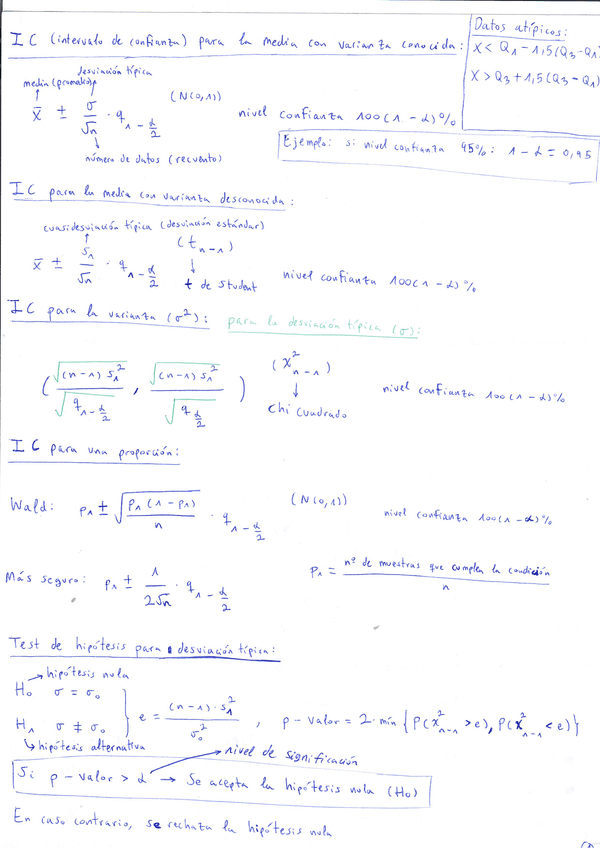 Datos atípicos:
X < Q₁ - 1,5(Q₃ - Q₁)
X > Q₃ + 1,5(Q₃ - Q₁)
IC (intervalo de confianza) para la media con varianza conocida:
desviación típica
media (promedio)
x̄ ± σ/√n · q_{1-α/2} (N(0,1)) nivel confianza 100(1 - α)%
número de datos (recuento)
Ejemplo: si nivel confianza 95%: 1 - α = 0,95
IC para la media con varianza desconocida:
cuasidesviación típica (desviación estándar)
x̄ ± s₁/√n · q_{1-α/2} (t_{n-1}) nivel confianza 100(1 - α)%
t de Student
IC para la varianza (σ²): para la desviación típica (σ):
(√((n-1)s₁²)/√(q_{1-α/2}), √((n-1)s₁²)/√(q_{α/2})) (χ²_{n-1}) nivel confianza 100(1 - α)%
Chi cuadrado
IC para una proporción:
Wald: p₁ ± √(p₁(1-p₁)/n) · q_{1-α/2} (N(0,1)) nivel confianza 100(1-α)%
Más seguro: p₁ ± 1/(2√n) · q_{1-α/2} p₁ = nº de muestras que cumplen la condición / n
Test de hipótesis para desviación típica:
hipótesis nula
H₀ σ = σ₀
H₁ σ ≠ σ₀ } e = (n-1)·s₁²/σ₀² , p-valor = 2·min {P(χ²_{n-1} > e), P(χ²_{n-1} < e)}
hipótesis alternativa
nivel de significación
Si p-valor > α → Se acepta la hipótesis nula (H₀)
En caso contrario, se rechaza la hipótesis nula